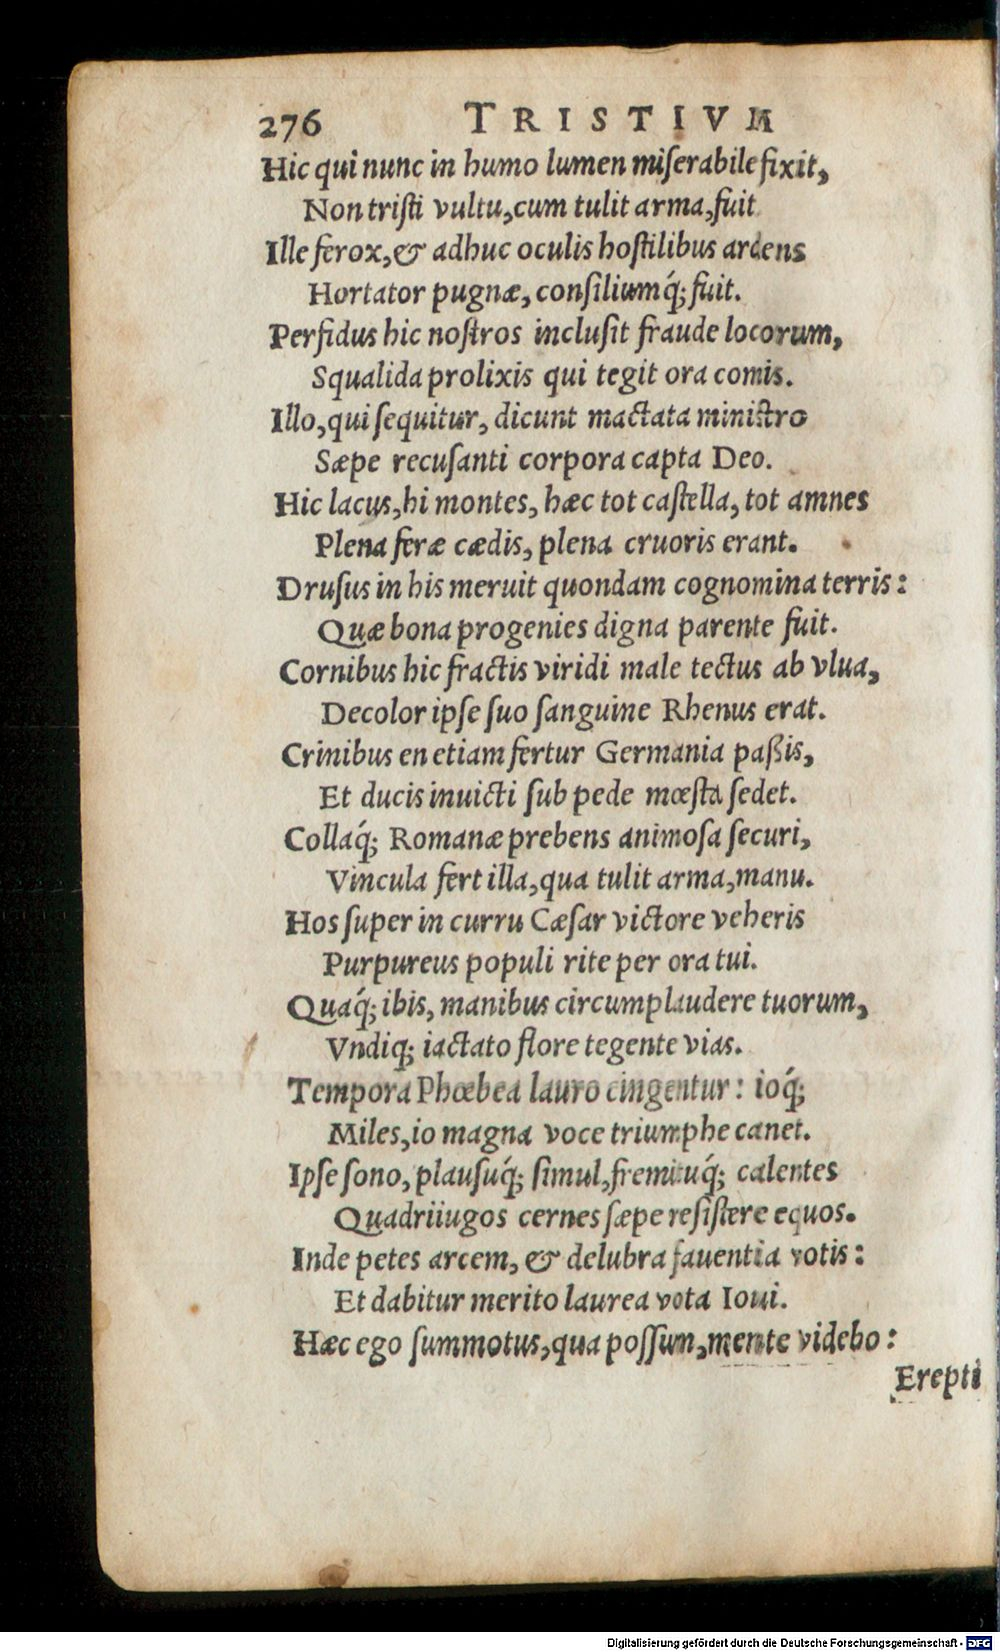 276 TRISTIVM
Hic qui nunc in humo lumen miſerabile fixit,
Non triſti vultu, cum tulit arma, fuit
Ille ferox, & adhuc oculis hoſtilibus ardens
Hortator pugnæ, conſiliumq́; fuit.
Perfidus hic noſtros incluſit fraude locorum,
Squalida prolixis qui tegit ora comis.
Illo, qui ſequitur, dicunt mactata miniſtro
Sæpe recuſanti corpora capta Deo.
Hic lacus, hi montes, hæc tot caſtella, tot amnes
Plena feræ cædis, plena cruoris erant.
Druſus in his meruit quondam cognomina terris:
Quæ bona progenies digna parente fuit.
Cornibus hic fractis viridi male tectus ab vlua,
Decolor ipſe ſuo ſanguine Rhenus erat.
Crinibus en etiam fertur Germania paßis,
Et ducis inuicti ſub pede mœſta ſedet.
Collaq́; Romanæ prebens animoſa ſecuri,
Vincula fert illa, qua tulit arma, manu.
Hos ſuper in curru Cæſar victore veheris
Purpureus populi rite per ora tui.
Quaq́; ibis, manibus circumplaudere tuorum,
Vndiq; iactato flore tegente vias.
Tempora Phœbea lauro cingentur: ioq́;
Miles, io magna voce triumphe canet.
Ipſe ſono, plauſuq́; ſimul, fremituq́; calentes
Quadriiugos cernes ſæpe reſiſtere equos.
Inde petes arcem, & delubra fauentia votis:
Et dabitur merito laurea vota Ioui.
Hæc ego ſummotus, qua poſſum, mente videbo:
Erepti
Digitalisierung gefördert durch die Deutsche Forschungsgemeinschaft - DFG